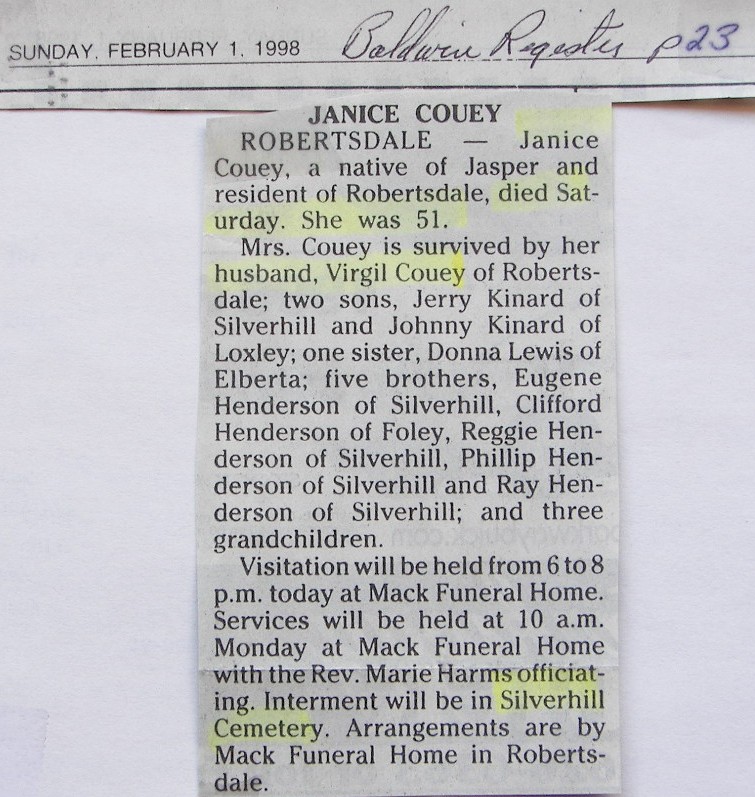 SUNDAY, FEBRUARY 1, 1998 Baldwin Register p 23
JANICE COUEY
ROBERTSDALE — Janice
Couey, a native of Jasper and
resident of Robertsdale, died Sat-
urday. She was 51.
Mrs. Couey is survived by her
husband, Virgil Couey of Roberts-
dale; two sons, Jerry Kinard of
Silverhill and Johnny Kinard of
Loxley; one sister, Donna Lewis of
Elberta; five brothers, Eugene
Henderson of Silverhill, Clifford
Henderson of Foley, Reggie Hen-
derson of Silverhill, Phillip Hen-
derson of Silverhill and Ray Hen-
derson of Silverhill; and three
grandchildren.
Visitation will be held from 6 to 8
p.m. today at Mack Funeral Home.
Services will be held at 10 a.m.
Monday at Mack Funeral Home
with the Rev. Marie Harms officiat-
ing. Interment will be in Silverhill
Cemetery. Arrangements are by
Mack Funeral Home in Roberts-
dale.